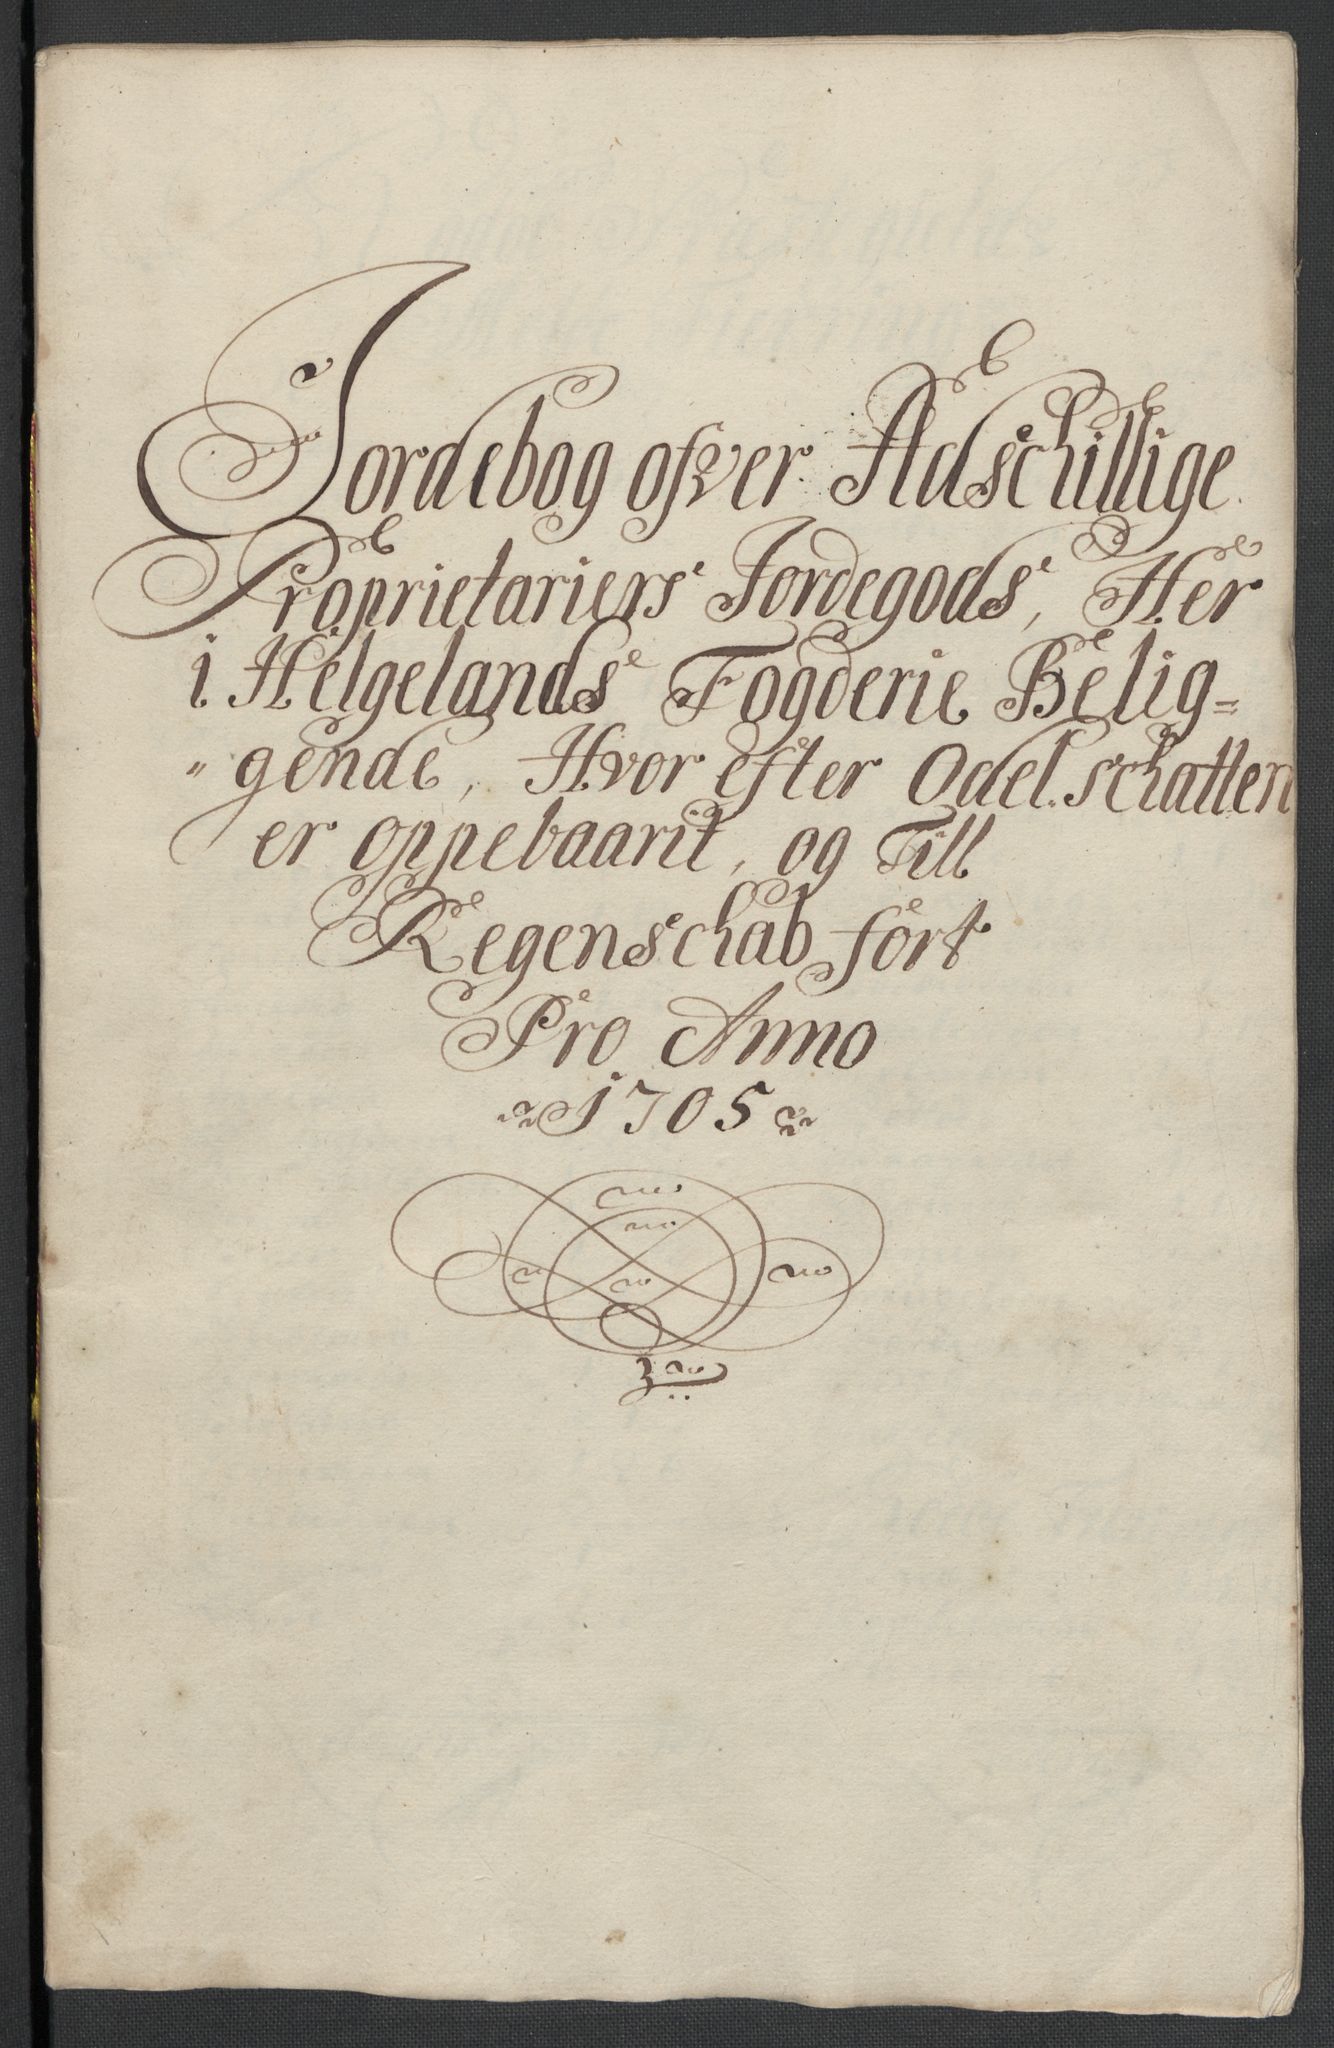 Jordebog ofver Adschillige
Proprietariers Jordegods, Her
i Helgelands Fogderie Belig=
"gende, Hvor efter Odel.schatten
er oppebaarit, og Till
Regenschab fört
Pro Anno
1705